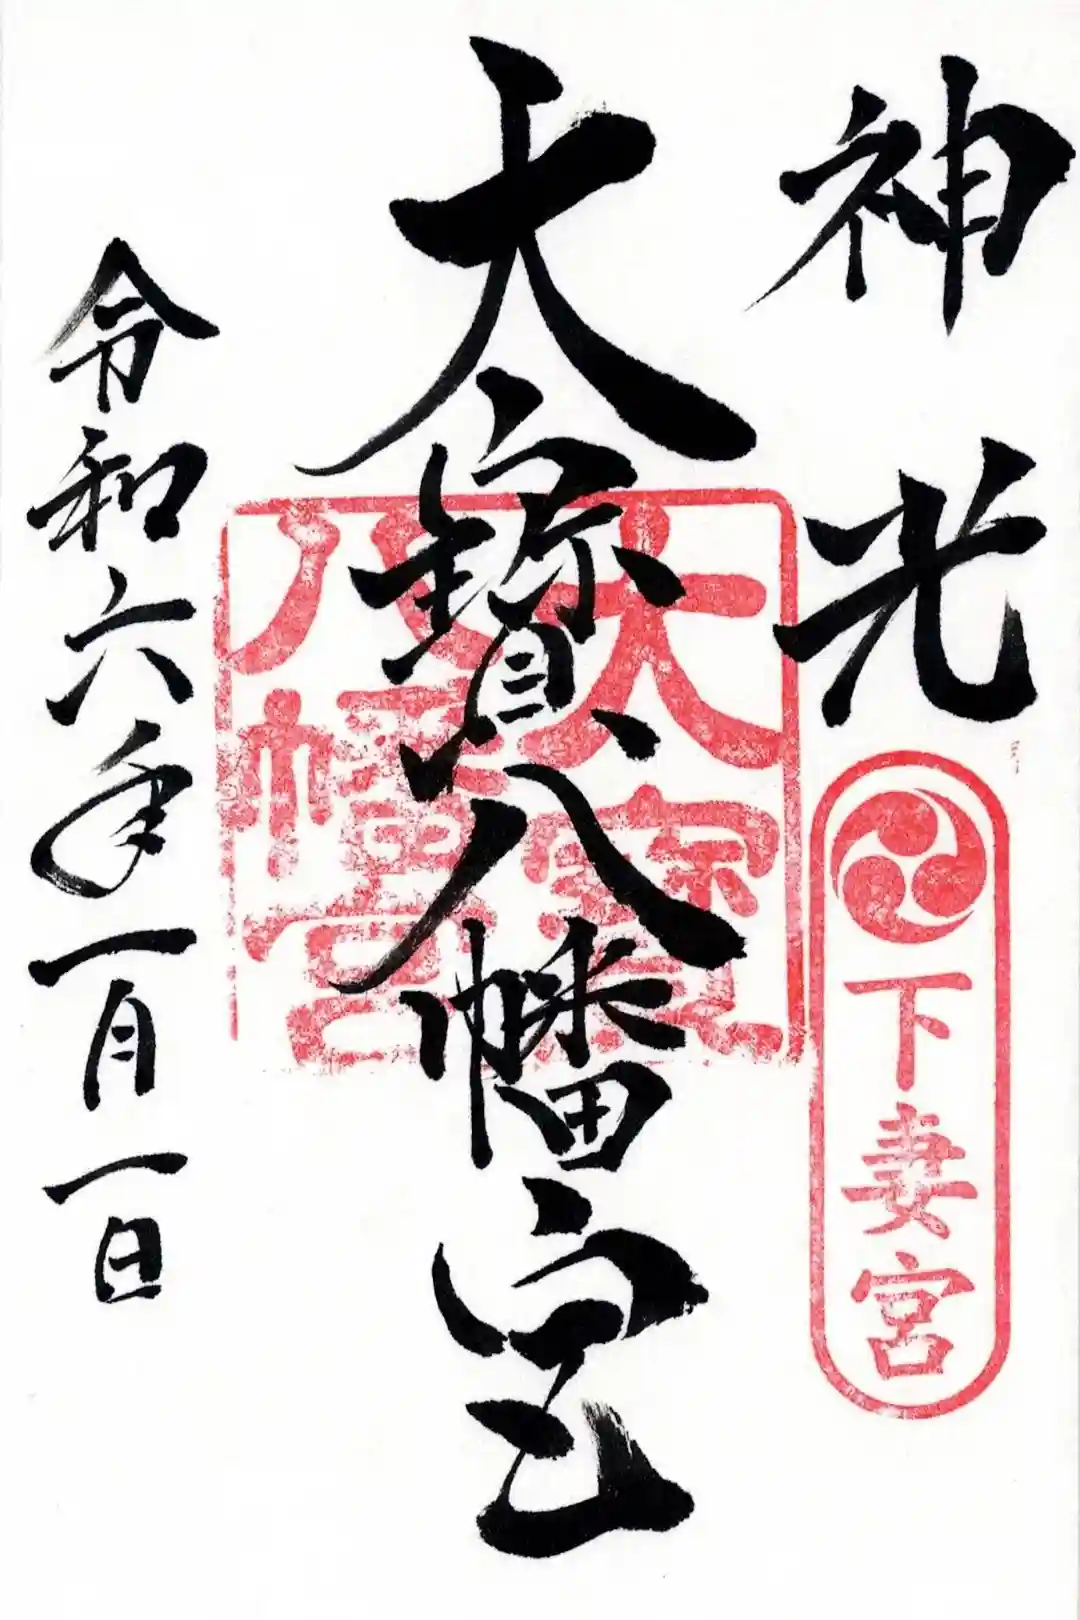 神光
下妻宮
大寳八幡宮
大寳
八幡宮
令和六年一月一日